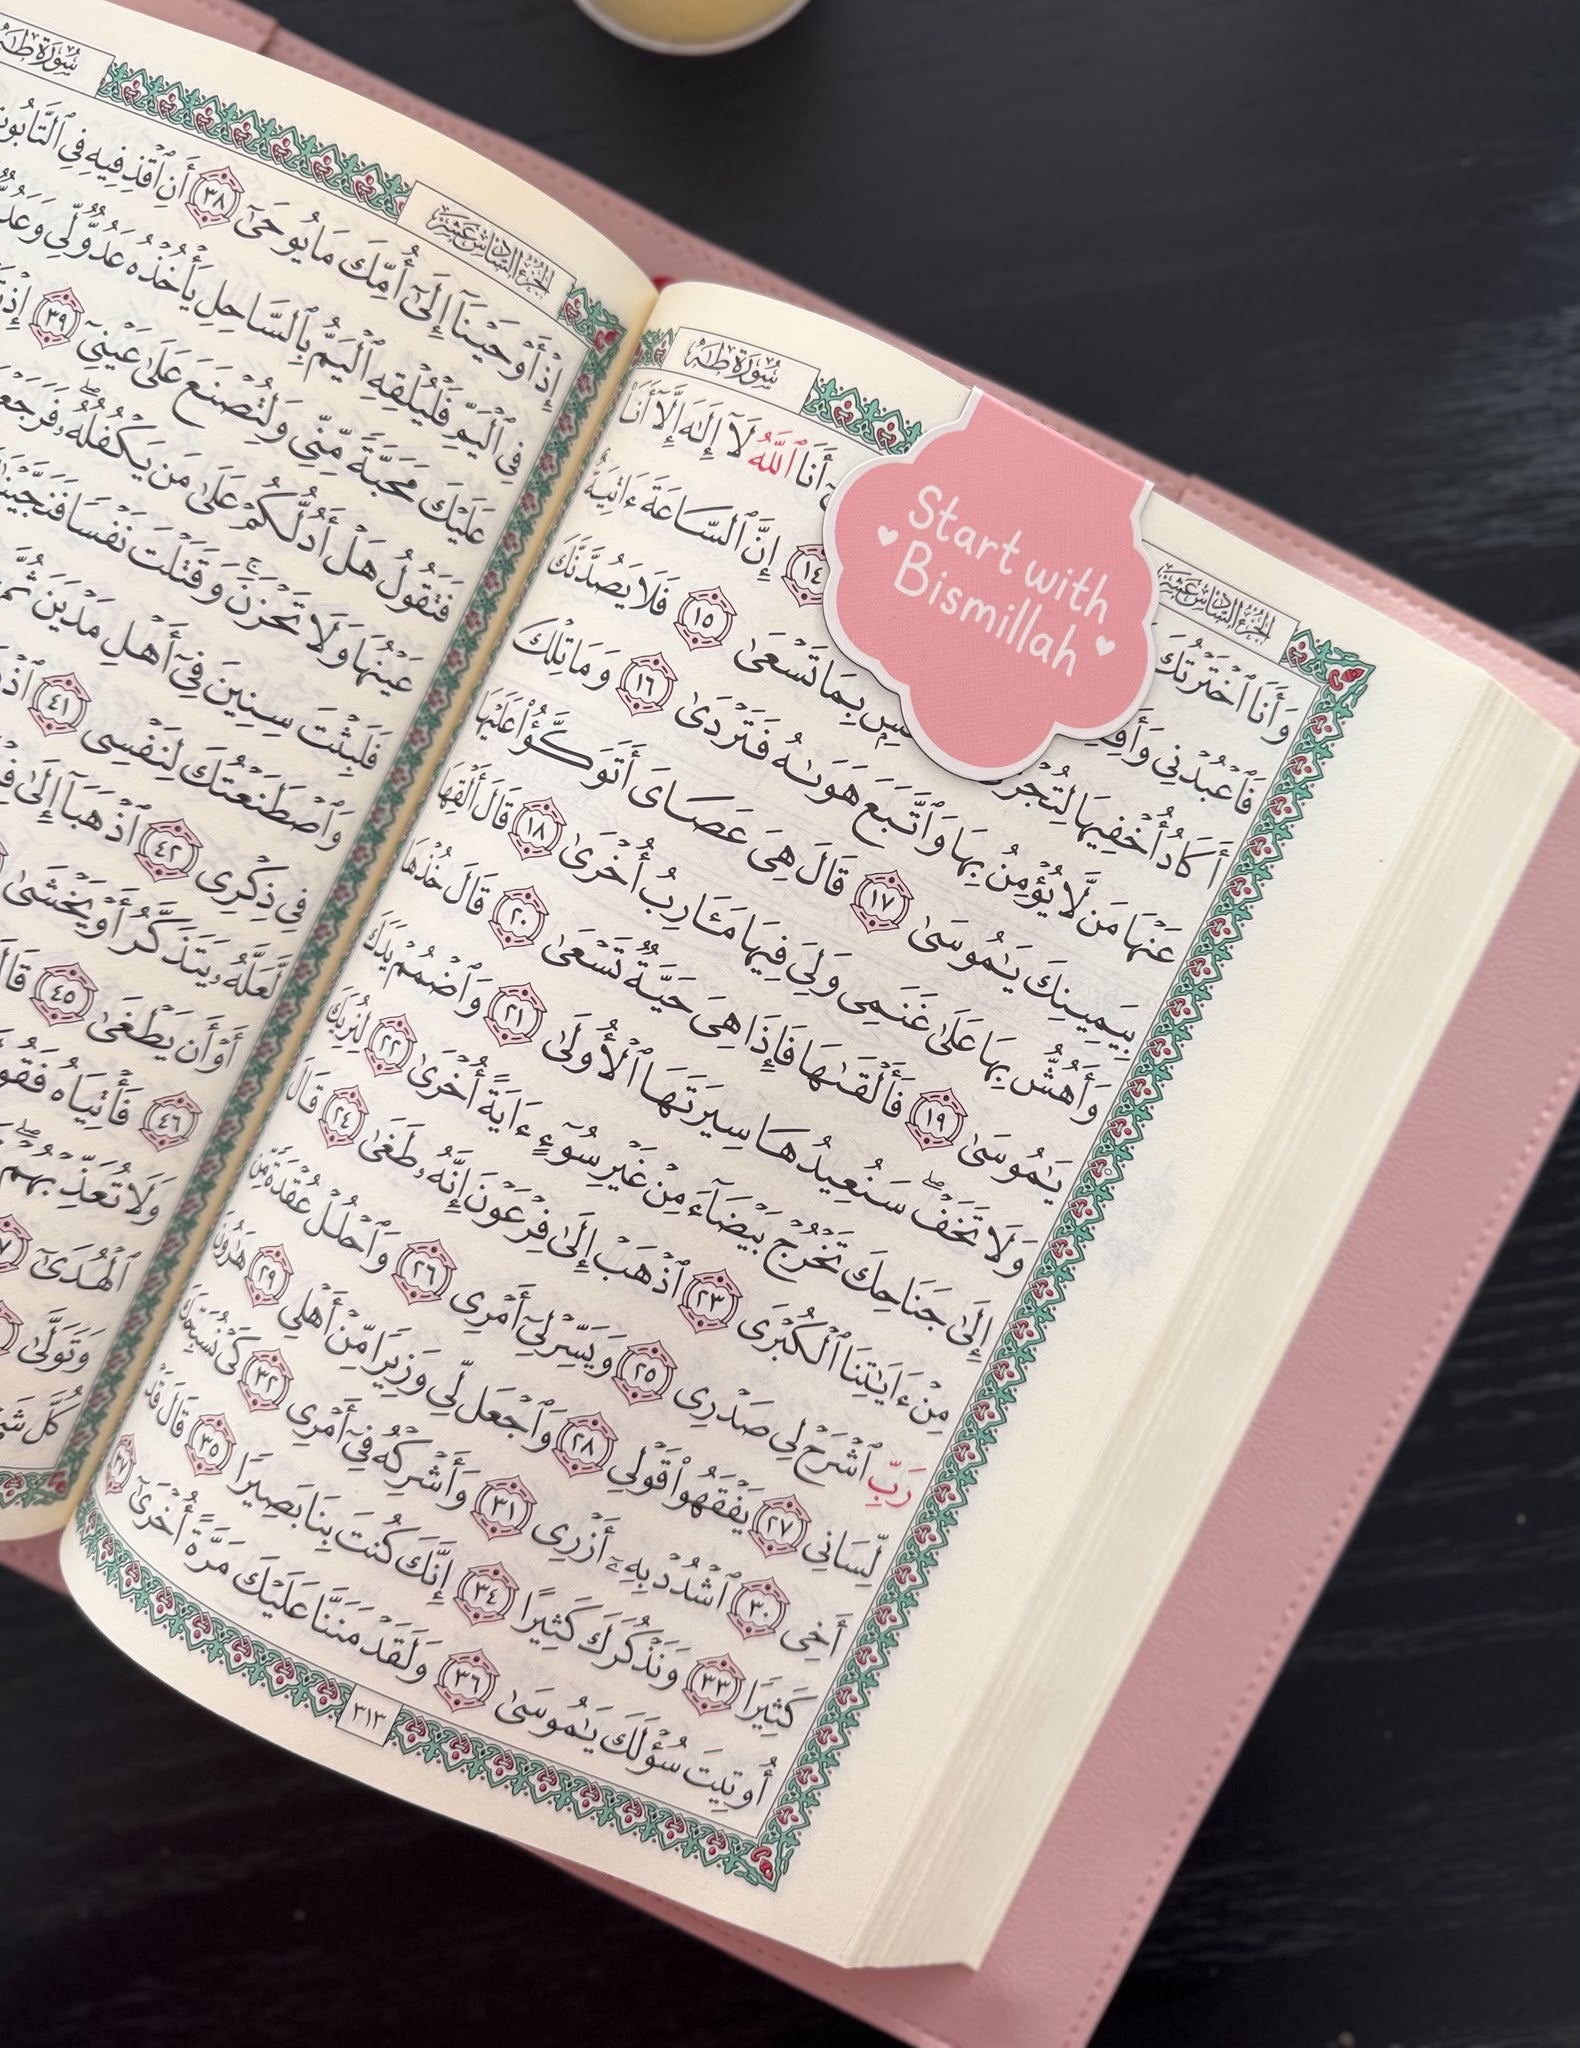 سُورَةُ طه
الجُزْءُ السَّادِسَ عَشَرَ
وَأَنَا ٱخْتَرْتُكَ أَنَا ٱللَّهُ لَآ إِلَٰهَ إِلَّآ أَنَا۠
فَٱعْبُدْنِى ١٤ إِنَّ ٱلسَّاعَةَ ءَاتِيَةٌ
أَكَادُ أُخْفِيهَا بِمَا تَسْعَىٰ ١٥ فَلَا يَصُدَّنَّكَ
عَنْهَا مَن لَّا يُؤْمِنُ بِهَا وَٱتَّبَعَ هَوَىٰهُ فَتَرْدَىٰ ١٦ وَمَا تِلْكَ
بِيَمِينِكَ يَٰمُوسَىٰ ١٧ قَالَ هِىَ عَصَاىَ أَتَوَكَّؤُا۟ عَلَيْهَا
وَأَهُشُّ بِهَا عَلَىٰ غَنَمِى وَلِىَ فِيهَا مَـَٔارِبُ أُخْرَىٰ ١٨ قَالَ أَلْقِهَا
يَٰمُوسَىٰ ١٩ فَأَلْقَىٰهَا فَإِذَا هِىَ حَيَّةٌ تَسْعَىٰ ٢٠ قَالَ خُذْهَا
وَلَا تَخَفْ ۖ سَنُعِيدُهَا سِيرَتَهَا ٱلْأُولَىٰ ٢١ وَٱضْمُمْ يَدَكَ
إِلَىٰ جَنَاحِكَ تَخْرُجْ بَيْضَآءَ مِنْ غَيْرِ سُوٓءٍ ءَايَةً أُخْرَىٰ ٢٢ لِنُرِيَكَ
مِنْ ءَايَٰتِنَا ٱلْكُبْرَى ٢٣ ٱذْهَبْ إِلَىٰ فِرْعَوْنَ إِنَّهُۥ طَغَىٰ ٢٤ قَالَ
رَبِّ ٱشْرَحْ لِى صَدْرِى ٢٥ وَيَسِّرْ لِىٓ أَمْرِى ٢٦ وَٱحْلُلْ عُقْدَةً مِّن
لِّسَانِى ٢٧ يَفْقَهُوا۟ قَوْلِى ٢٨ وَٱجْعَل لِّى وَزِيرًا مِّنْ أَهْلِى ٢٩ هَٰرُونَ
أَخِى ٣٠ ٱشْدُدْ بِهِۦٓ أَزْرِى ٣١ وَأَشْرِكْهُ فِىٓ أَمْرِى ٣٢ كَىْ نُسَبِّحَكَ
كَثِيرًا ٣٣ وَنَذْكُرَكَ كَثِيرًا ٣٤ إِنَّكَ كُنتَ بِنَا بَصِيرًا ٣٥ قَالَ قَدْ
أُوتِيتَ سُؤْلَكَ يَٰمُوسَىٰ ٣٦ وَلَقَدْ مَنَنَّا عَلَيْكَ مَرَّةً أُخْرَىٰٓ ٣٧
٣١٣
Start with
Bismillah
سُورَةُ طه
الجُزْءُ السَّادِسَ عَشَرَ
إِذْ أَوْحَيْنَآ إِلَىٰٓ أُمِّكَ مَا يُوحَىٰٓ ٣٨ أَنِ ٱقْذِفِيهِ فِى
فِى ٱلْيَمِّ فَلْيُلْقِهِ ٱلْيَمُّ بِٱلسَّاحِلِ يَأْخُذْهُ عَدُوٌّ لِّى
عَلَيْكَ مَحَبَّةً مِّنِّى وَلِتُصْنَعَ عَلَىٰ عَيْنِىٓ ٣٩
فَتَقُولُ هَلْ أَدُلُّكُمْ عَلَىٰ مَن يَكْفُلُهُۥ ۖ
عَيْنُهَا وَلَا تَحْزَنَ ۚ وَقَتَلْتَ نَفْسًا
فَلَبِثْتَ سِنِينَ فِىٓ أَهْلِ مَدْيَنَ
وَٱصْطَنَعْتُكَ لِنَفْسِى ٤١
فِى ذِكْرِى ٤٢ ٱذْهَبَآ إِلَىٰ
لَّعَلَّهُۥ يَتَذَكَّرُ أَوْ يَخْشَىٰ
أَوْ أَن يَطْغَىٰ ٤٥
٤٦ فَأْتِيَاهُ
وَلَا تُعَذِّبْهُمْ ۖ
ٱلْهُدَىٰٓ
وَتَوَلَّىٰ
كُلَّ